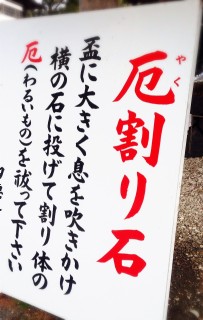 厄割り石
やく
盃に大きく息を吹きかけ
横の石に投げて割り体の
厄(わるいもの)を祓って下さい